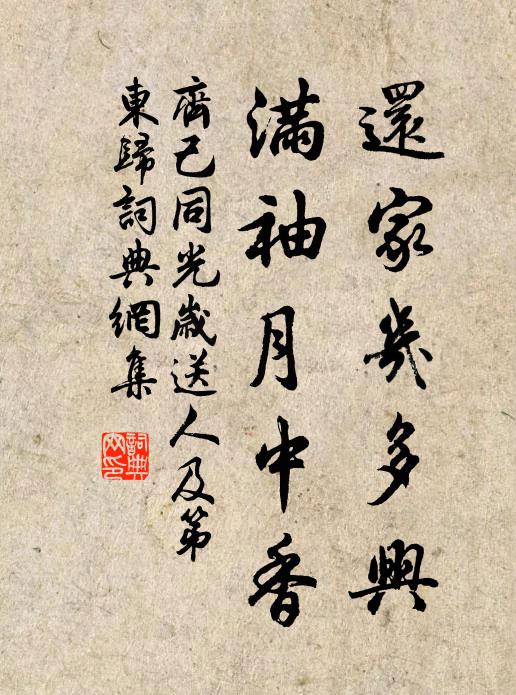 還家幾多興
滿袖月中香
齊己同光歲送人及第
東歸詞典網集
詞典
网印